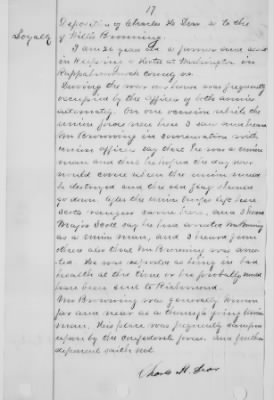 17
Loyalty
Deposition of Charles H. Dear as to the
of Willis Browning.
I am 50 years old a farmer and
in keeping a Hotel at Washington in
Rappahannock County Va
During the war my house was frequently
occupied by the officers of both armies
alternately. On one occasion while the
union forces were here I saw and heard
Mr Browning in conversation with
union officers say that he was a union
man and that he hoped the day
would come when the union would
be and the flag should
go down. After the union forces left here
Scotts rangers came here, and I heard
Major Scott say he had arrested Mr Browning
as a union man, and I heard from
others also that Mr Browning was arres
ted. He was reported as being in bad
health at the time or he probably would
have been sent to Richmond.
Mr Browning was generally known
far and near as a thorough going Union
man. His place was frequently
upon by the confederate forces. And further
deponent saith not.
Chas. H. Dear